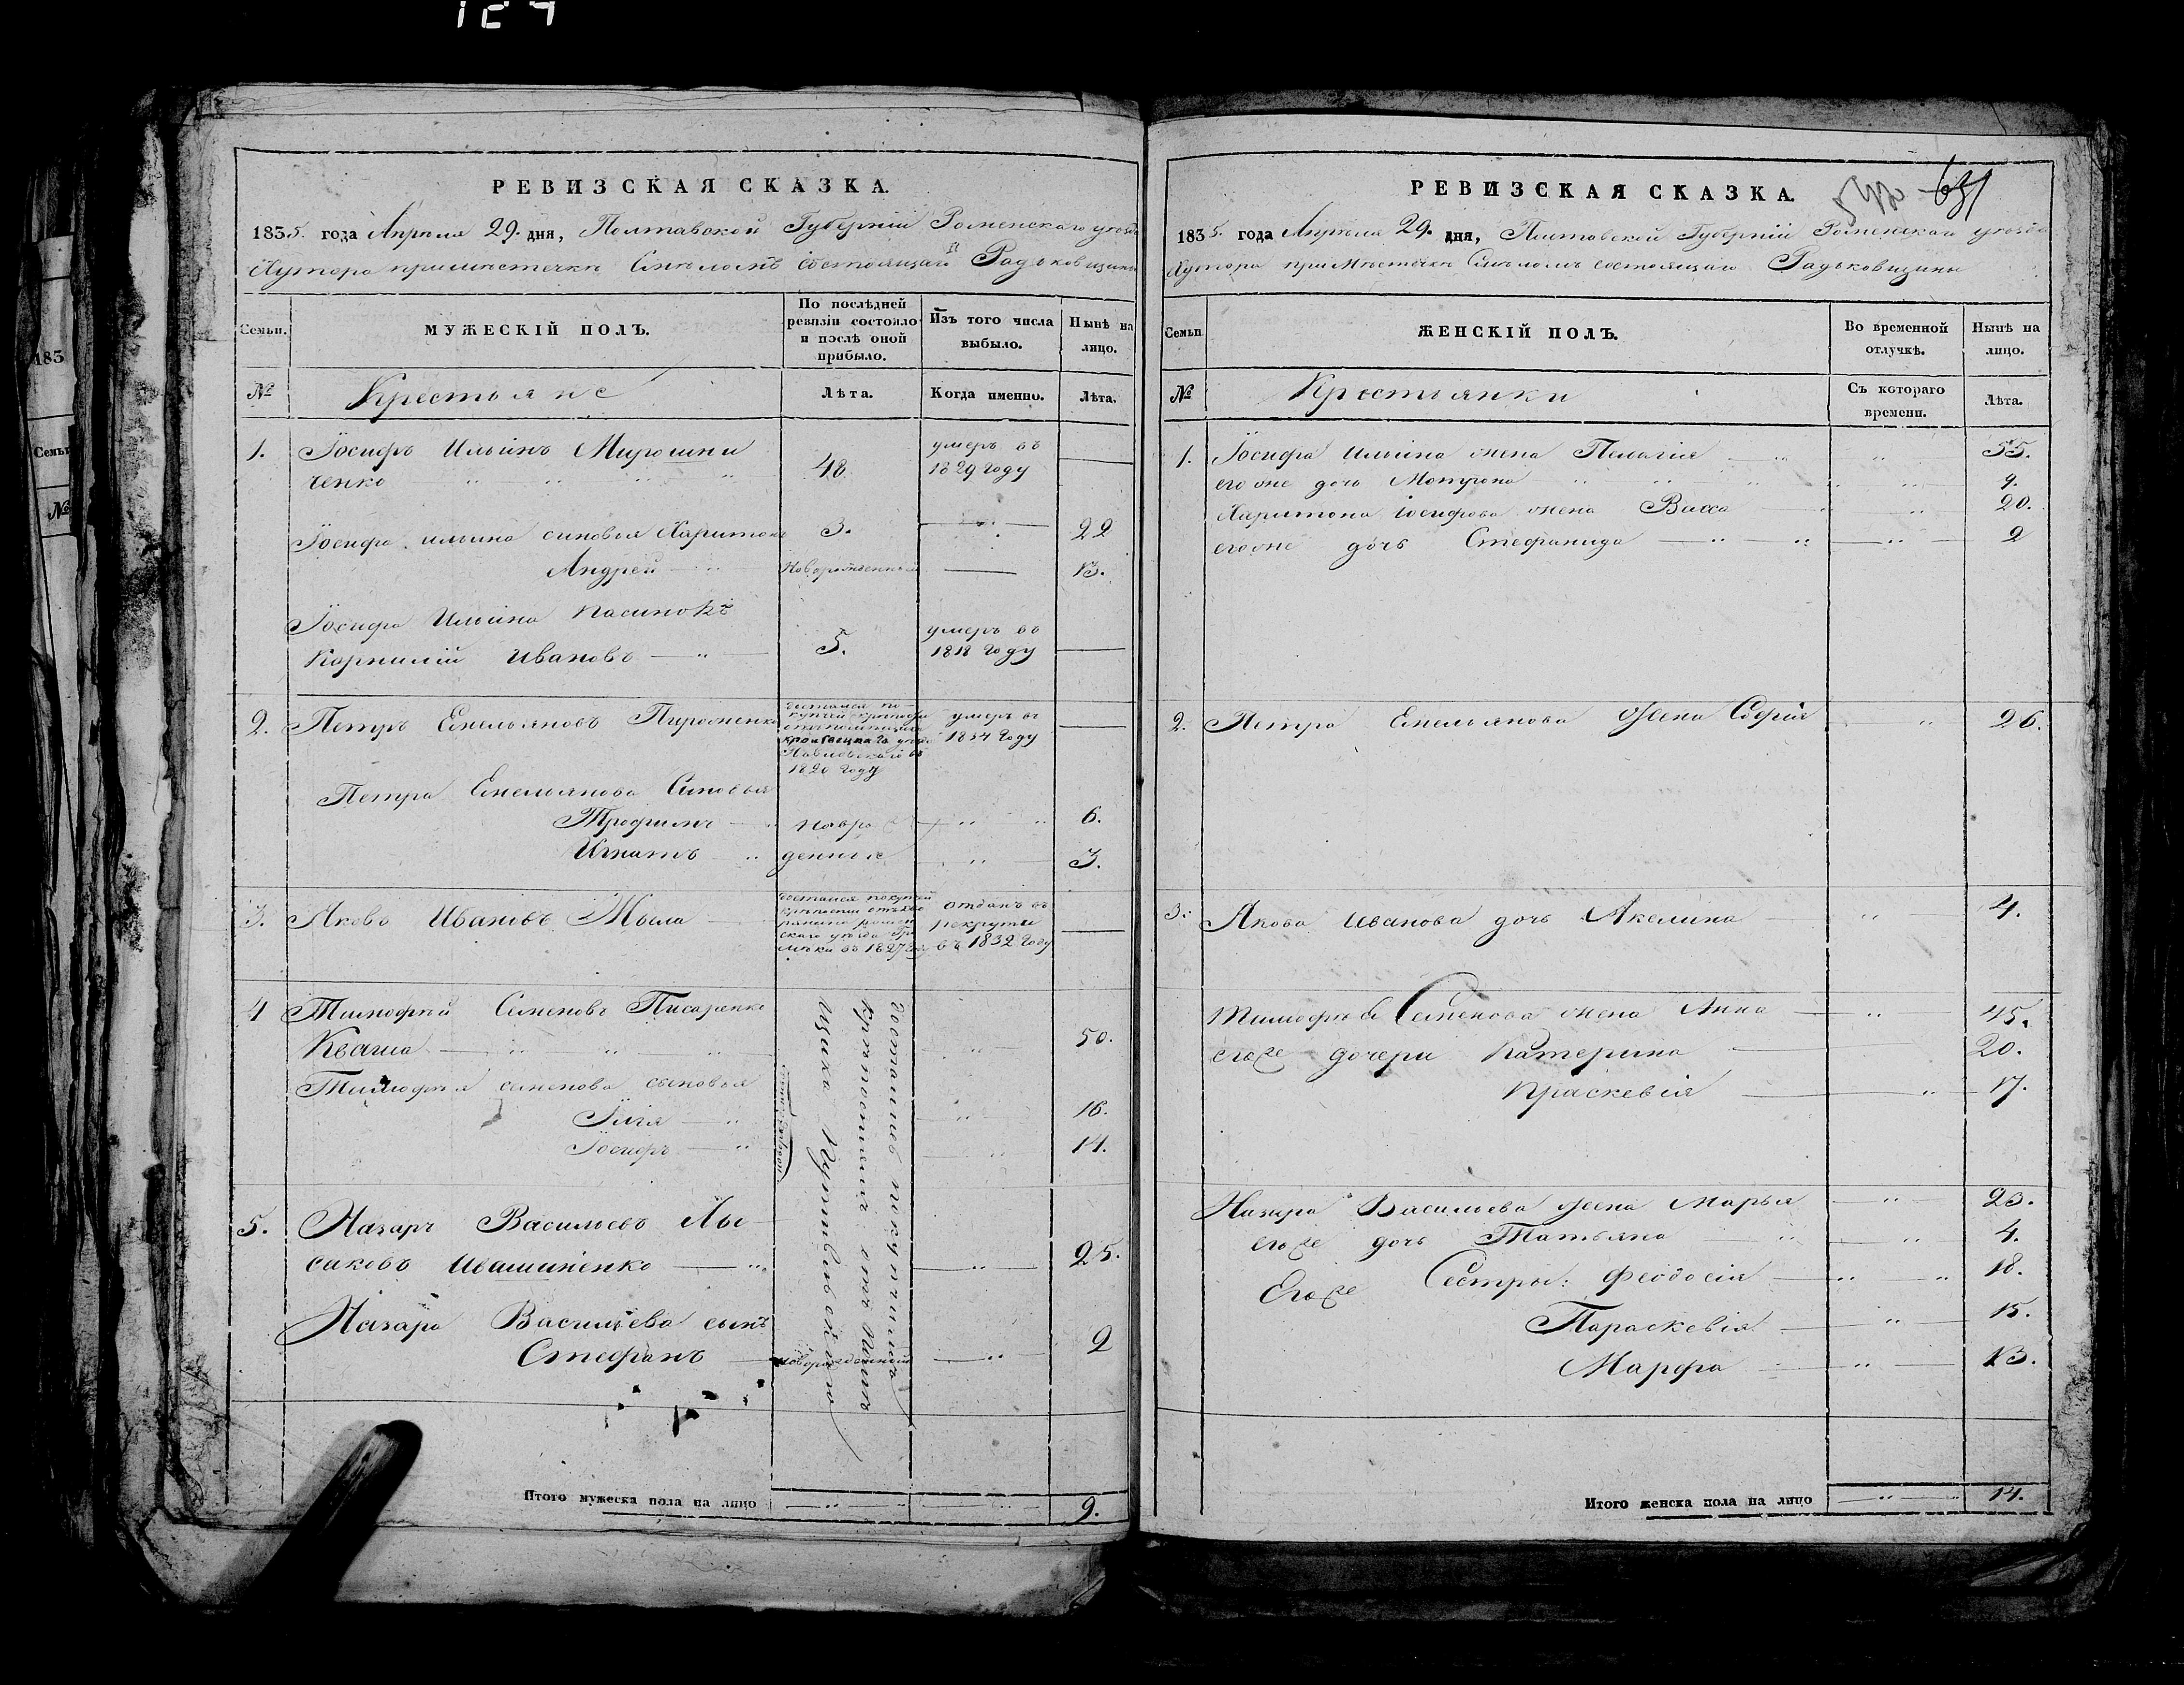 127
РЕВИЗСКАЯ СКАЗКА.
1835. года Апреля 29. дня, Полтавской Губернiи Роменскаго уезда
Хутора приместечке Смеломъ состоящаго Радьковщины
Семьи.
МУЖЕСКIЙ ПОЛЪ.
По послѣдней ревизiи состояло и послѣ оной прибыло.
Изъ того числа выбыло.
Нынѣ на лицо.
№
Крестьяне
Лѣта.
Когда именно.
Лѣта.
1. Iосифъ Ильинъ Мирошни
ченко 48. умеръ въ 1829 году
Iосифа ильина синовья Харитонъ 3. 22
Андрей Новорожденный 13.
Iосифа Ильина пасинокъ
Корнилiй Ивановъ 5. умеръ въ 1818 году
2. Петръ Емельяновъ Пироженко
1820 году
умеръ въ 1834 году
Петра Емельянова Синовья
Трофимъ новоро 6.
Игнатъ денные 3.
3. Яковъ Ивановъ Мыла
въ 1827
отданъ въ рекруты въ 1832 году
4 Тимофей Семеновъ Писаренко
Кваша 50.
Тимофея семенова сыновья
Iлiя 16.
Iосифъ 14.
Достались покупчимъ
крепостямъ отъ
5. Назаръ Васильевъ Лы
саковъ Ивашиненко 25.
Назара Васильева сынъ
Стефанъ новорожденный 2
Итого мужеска пола на лицо 9.
РЕВИЗСКАЯ СКАЗКА. 631
1835. года Апреля 29. дня, Полтавской Губернiи Роменскаго уезда
Хутора приМестечке Смеломъ состоящаго Радьковщины
Семьи
ЖЕНСКIЙ ПОЛЪ.
Во временной отлучкѣ.
Нынѣ на лицо.
№
Крестьянки
Съ котораго времени.
Лѣта.
1. Iосифа ильина жена Пелагiя 55.
его же дочь Мотрона 9.
Харитона iосифова жена Васса 20.
егоже дочь Стефанида 2
2. Петра Емельянова Жена Софiя 26.
3. Якова иванова дочь Акелина 4.
Тимофея Семенова жена Анна 45.
егоже дочери Катерина 20.
Праскевiя 17.
Назара Васильева жена Марья 23.
егоже дочь Татьяна 4.
Егоже Сестры: Феодосiя 18.
Параскевiя 15.
Марфа 13.
Итого женска пола на лицо 14.
183
Семьи
№